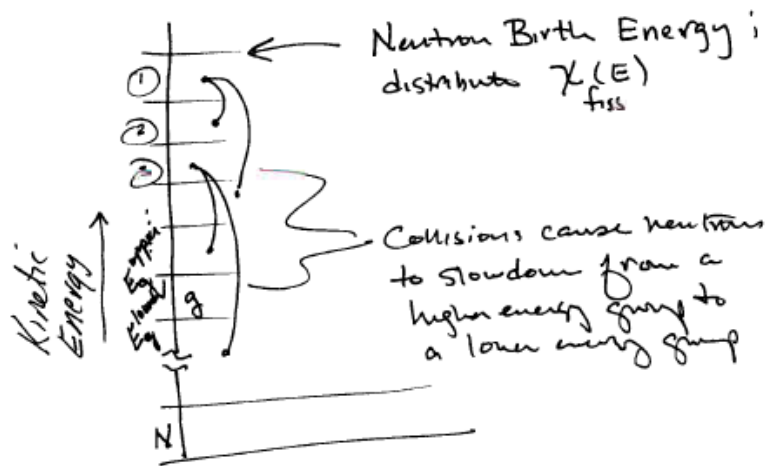 Neutron Birth Energy ;
distribute χ(E)
fiss
①
②
Kinetic
Energy
E upper
g
E lower
g
g
Collisions cause neutrons
to slowdown from a
higher energy group to
a lower energy group
N